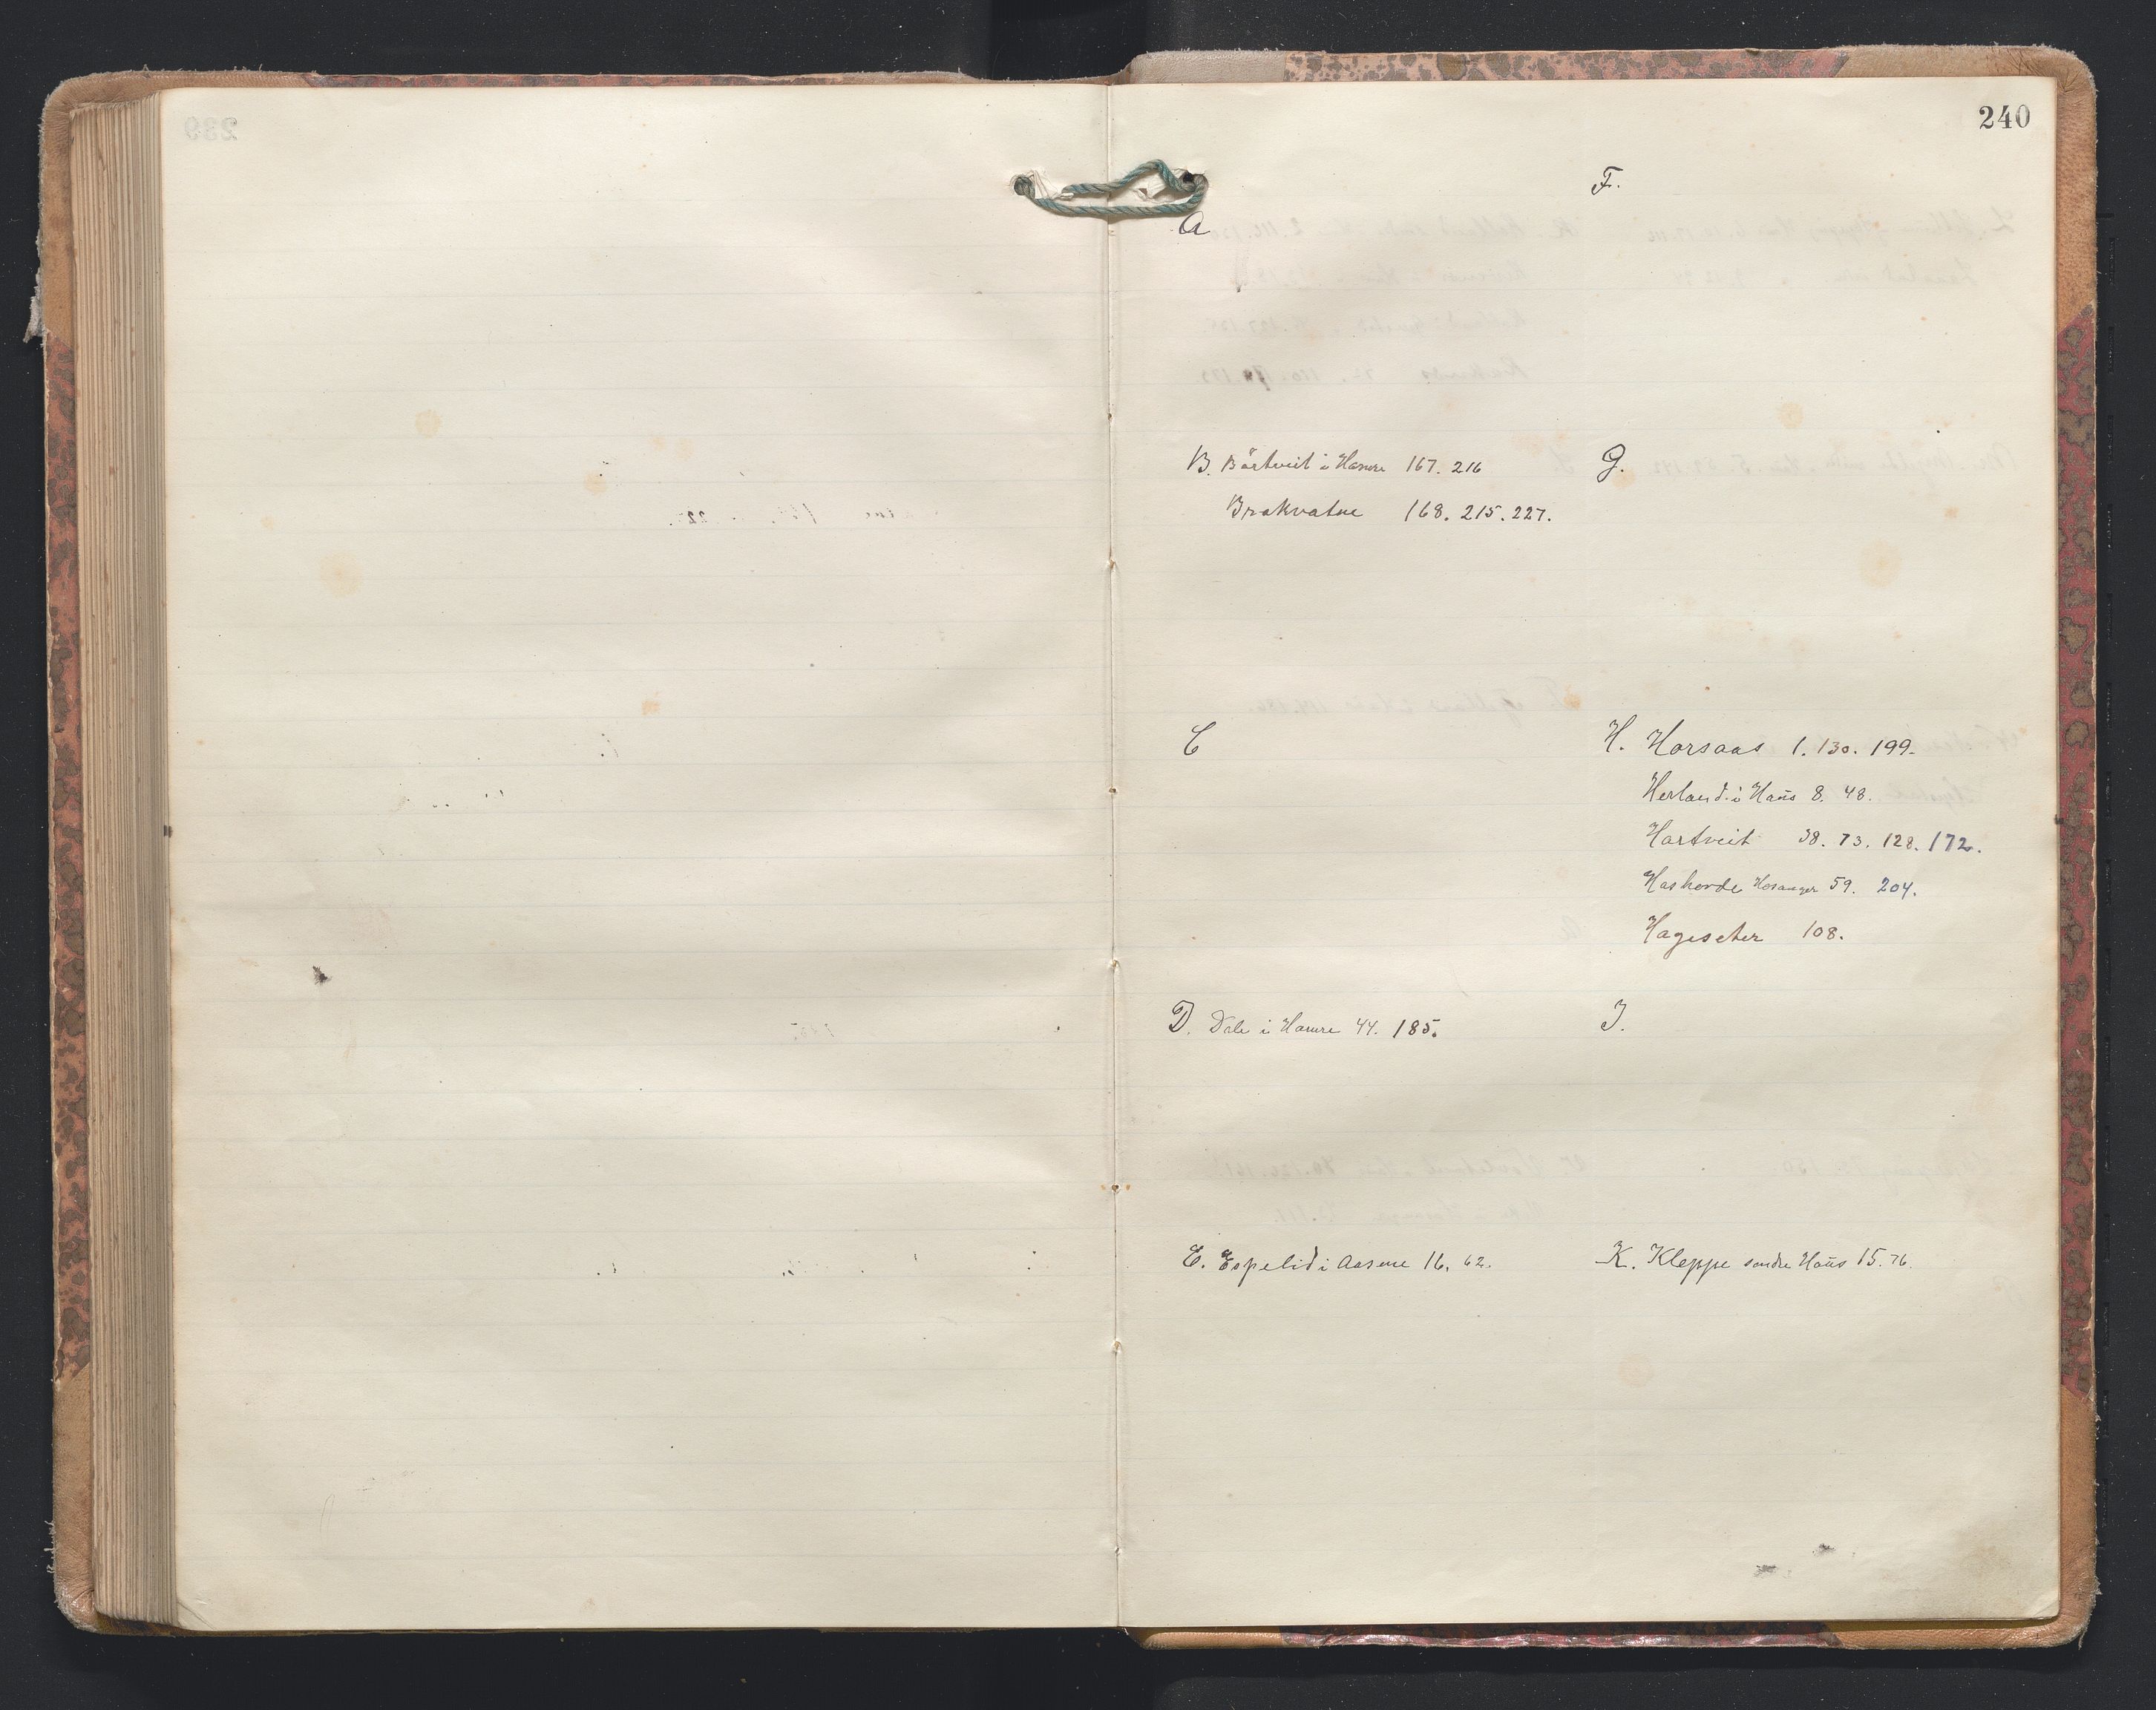 240
A
B. Börtveit i Hamre 167. 216
Brakvatne 168. 215. 227.
C
D. Dale i Hamre 44. 185.
E. Espelid i Aasene 16. 62.
F.
G.
H. Horsaas 1. 130. 199.
Herland i Haus 8. 48.
Hartveit 38. 73. 128. 172.
Hosanger 59. 204.
Hageseter 108.
I.
K. Kleppe søndre Haus 15. 76.